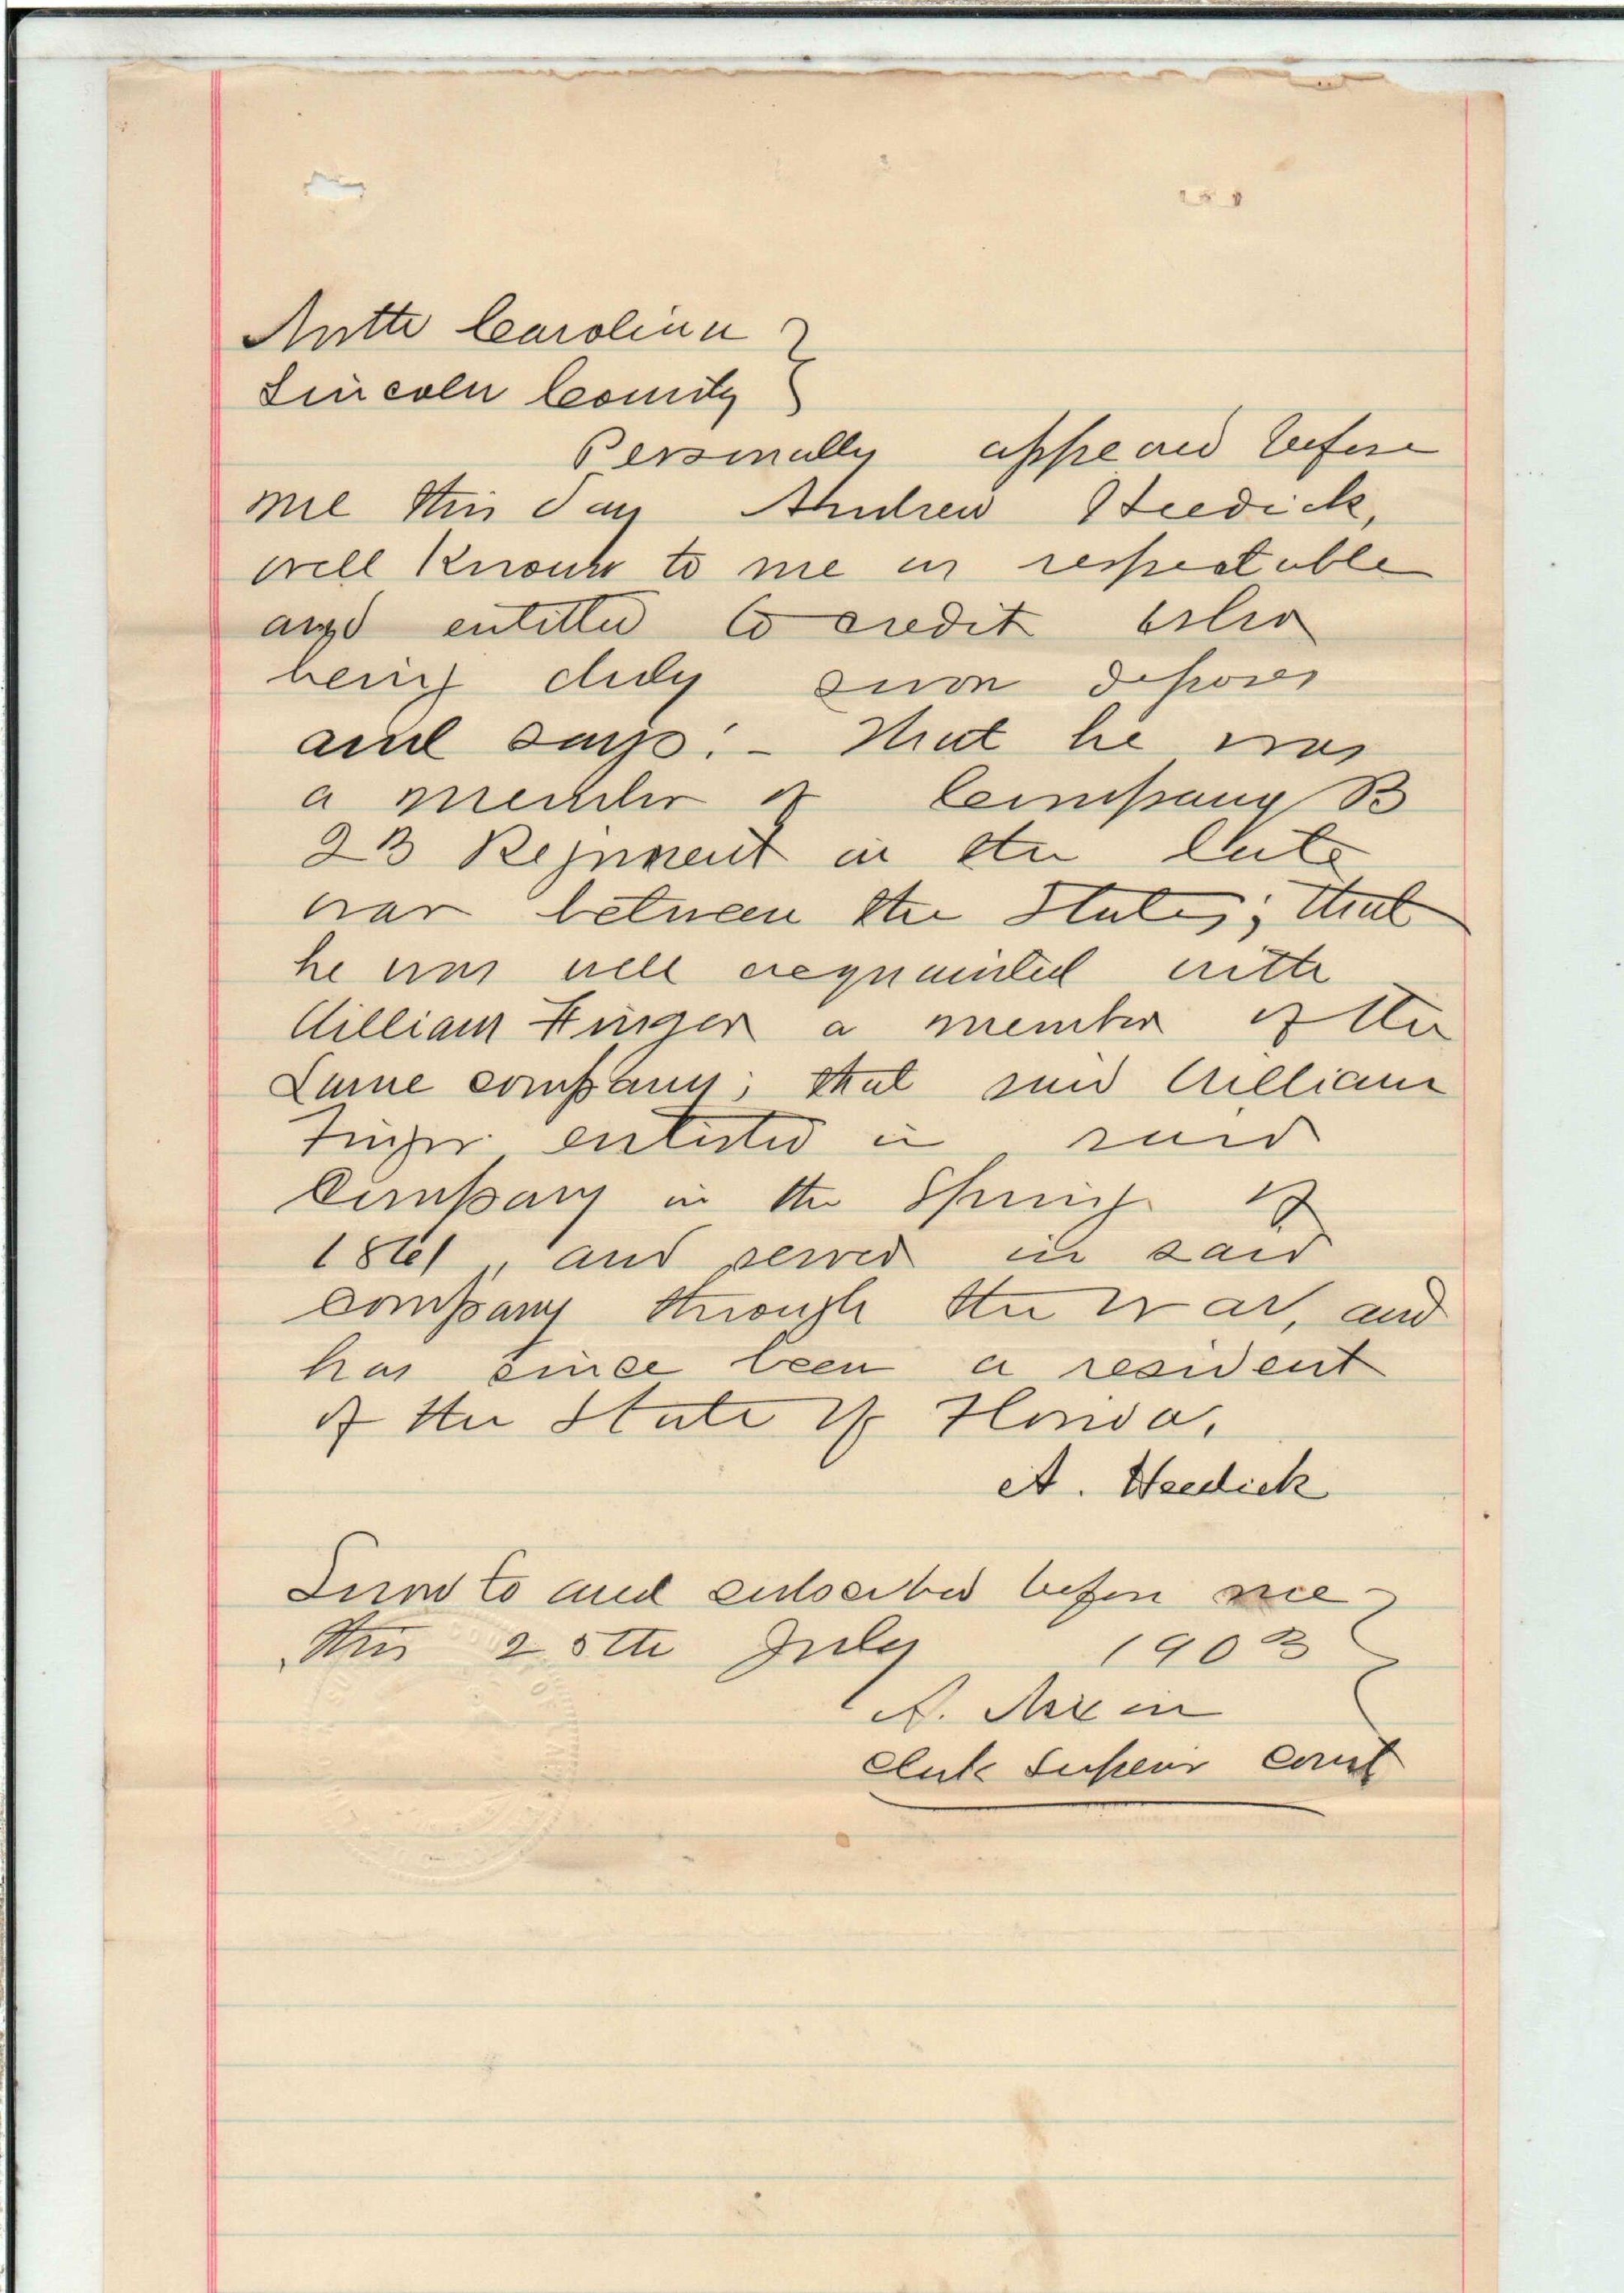 North Carolina }
Lincoln County }
Personally appeared before
me this day Andrew Heedick,
well Known to me as respectable
and entitled to credit who
being duly sworn deposes
and says:- That he was
a member of Company B
23 Regiment in the late
war between the States; that
he was well acquainted with
William Finger a member of the
Same company; that said William
Finger enlisted in said
Company in the Spring of
1861, and served in said
company through the war, and
has since been a resident
of the State of Florida.
A. Heedick
Sworn to and subscribed before me
this 25th July 1903
A. Nixon
Clerk Superior Court